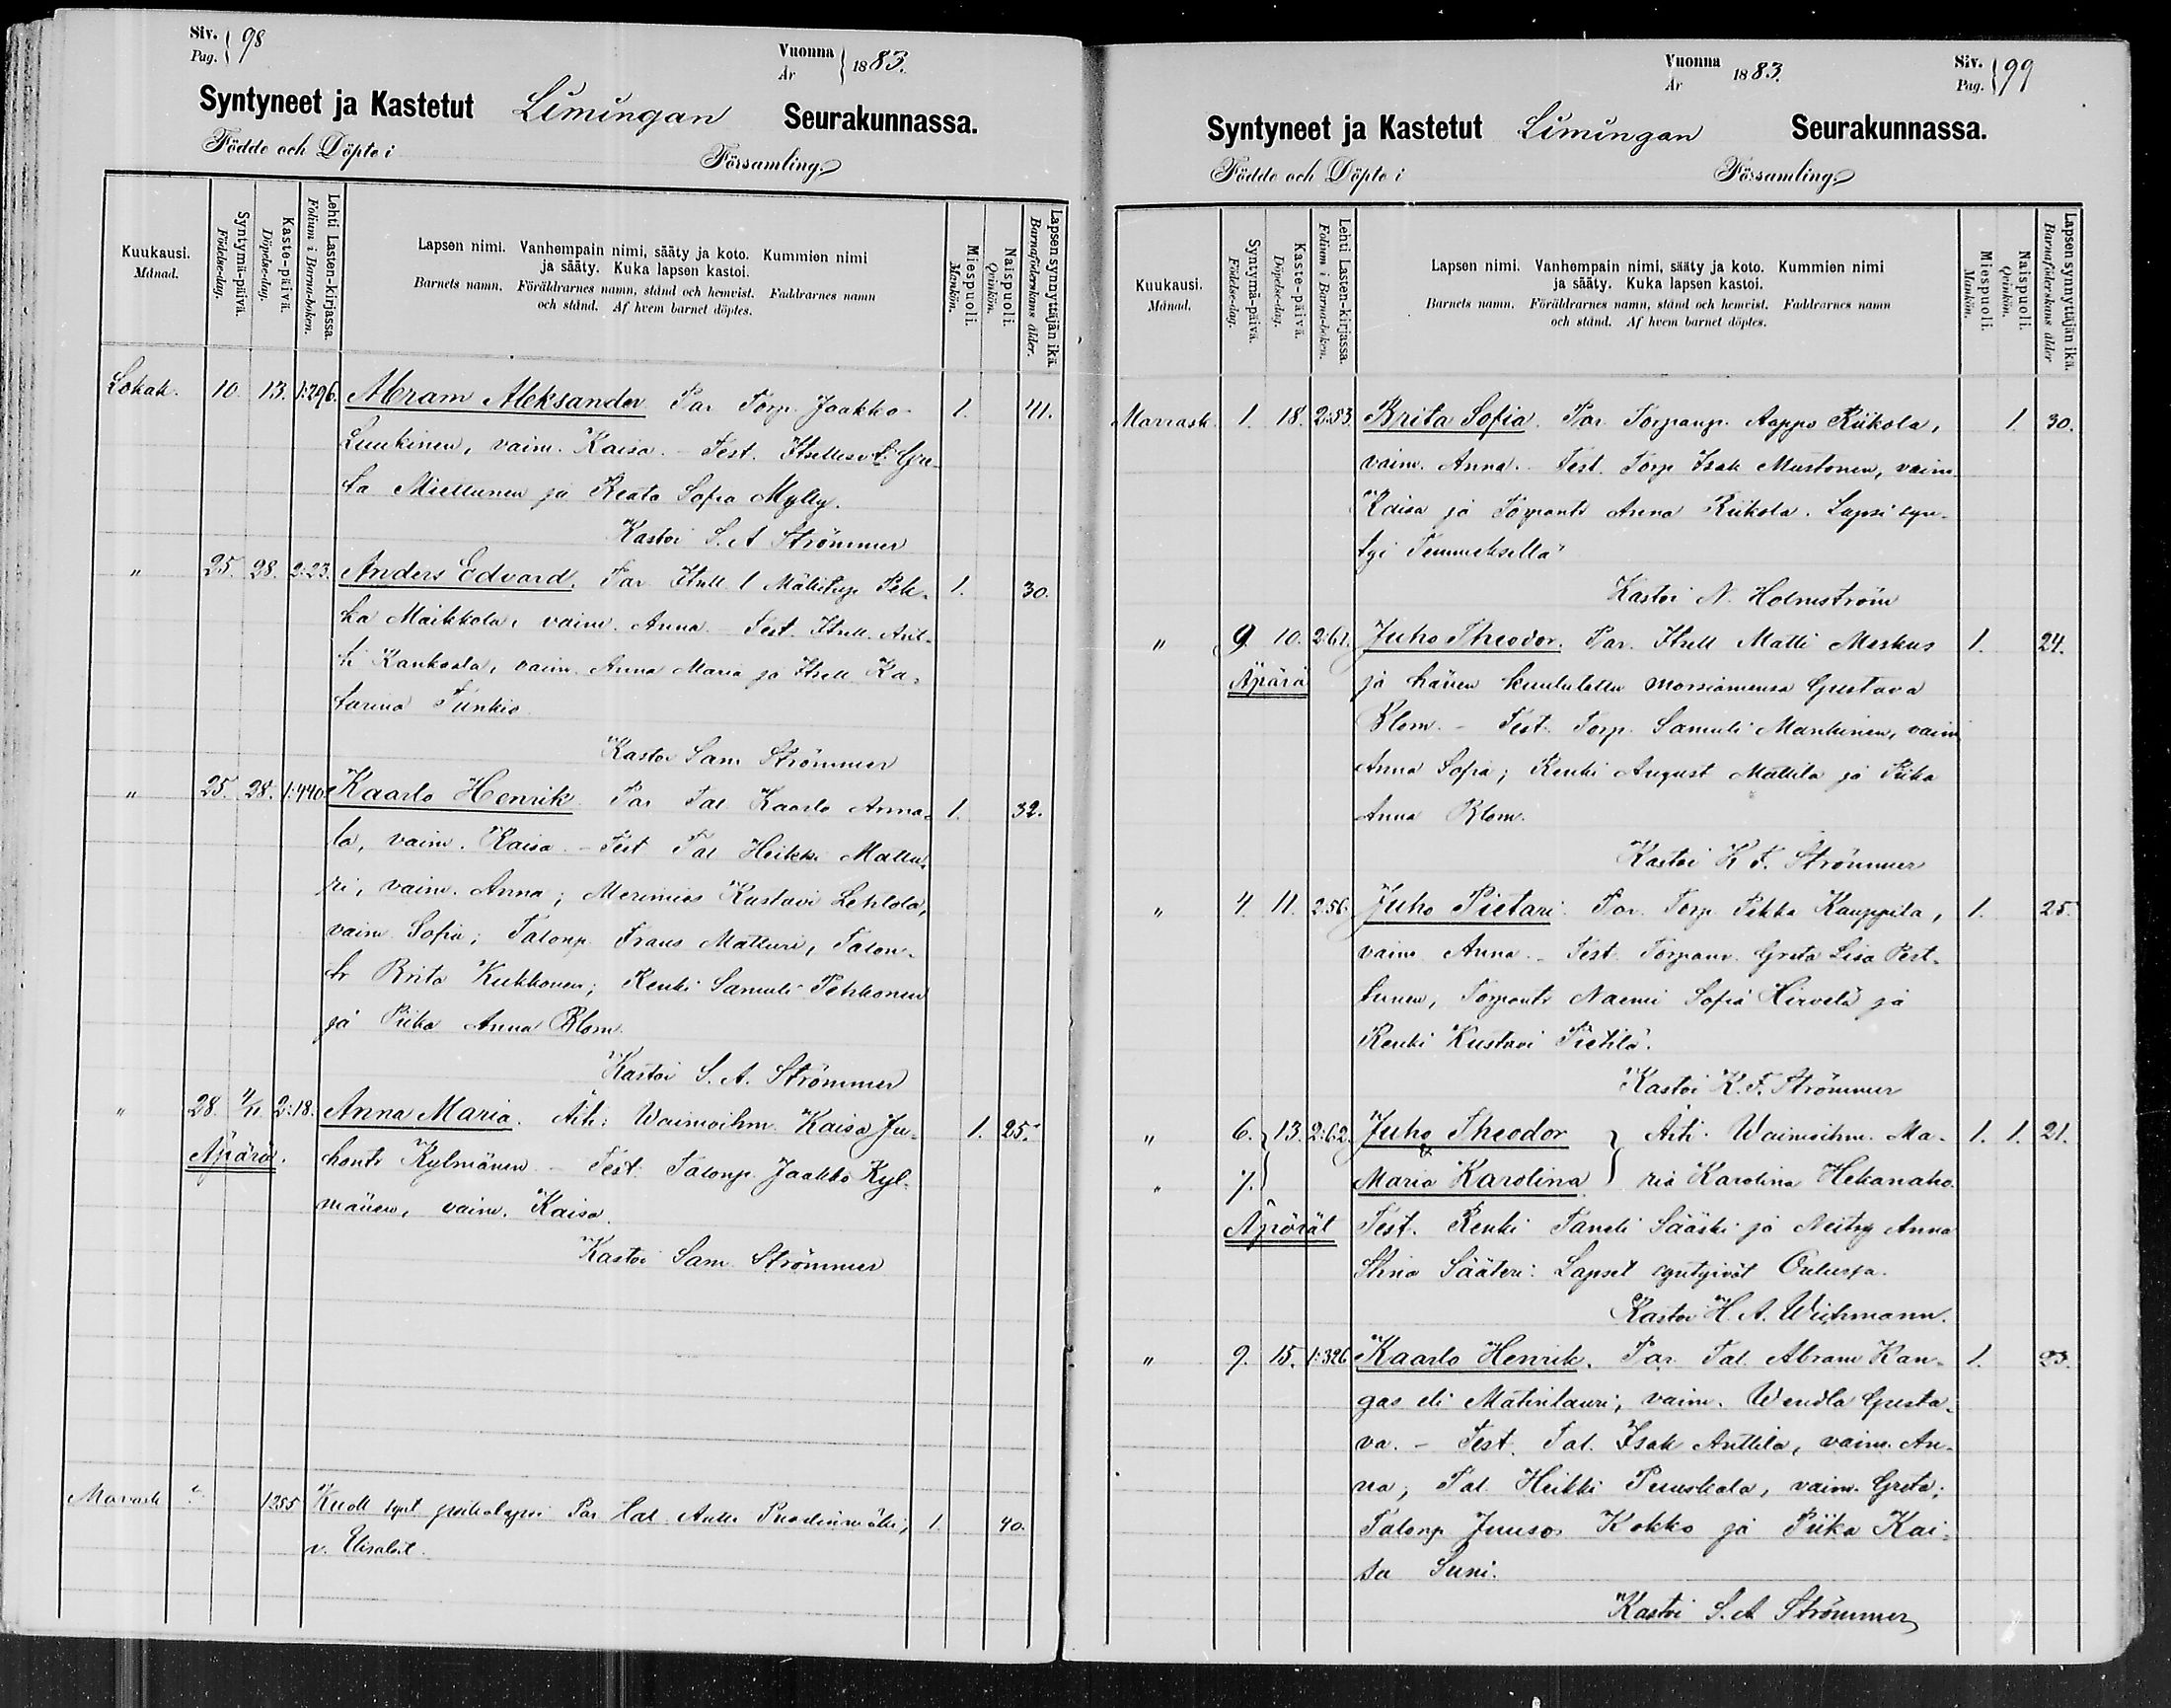 Siv. Pag. 98
Vuonna År 1883.
Syntyneet ja Kastetut Limingan Seurakunnassa.
Födde och Döpte i Församling.
Kuukausi. Månad.
Syntymä-päivä. Födelse-dag.
Kaste-päivä. Döpelse-dag.
Lehti Lasten-kirjassa. Folium i Barna-boken.
Lapsen nimi. Vanhempain nimi, sääty ja koto. Kummien nimi
ja sääty. Kuka lapsen kastoi.
Barnets namn. Föräldrarnes namn, stånd och hemvist. Faddrarnes namn
och stånd. Af hvem barnet döptes.
Miespuoli. Mankön.
Naispuoli. Qvinkön.
Lapsensynnyttäjän ikä. Barnaföderskans ålder.
Lokak. 10. 13. 1:296. Abram Aleksander. Par Torp. Jaakko 1. 41.
Luukinen, vaim. Kaisa. - Test. Itsellisvt. Gre-
ta Miettunen ja Beata Sofia Mylly.
Kastoi S. A Strömmer
" 25. 28. 2:23. Anders Edvard. Par Itsell. l Mäkitup Pek- 1. 30.
ka Maikkola, vaim. Anna. Test. Itsell. Ant-
ti Kankaala, vaim. Anna Maria ja Itsell Ka-
tarina
Kastoi Sam Strömmer
" 25. 28. 1:440. Kaarlo Henrik. Par Tal. Kaarlo Anna- 1. 32.
la, vaim. Kaisa. - Test Tal Heikki Mattu-
ri, vaim. Anna; Merimies Kustavi Lehtola,
vaim Sofia; Talonp. Frans Matturi, Talon-
tr Brita Kukkonen; Renki Samuli Pehkonen
ja Piika Anna Blom.
Kastoi S. A. Strömmer
" 28 4/11 2:18. Anna Maria. Äiti: Waimoihm. Kaisa Ju- 1. 25.
Äpärä. hontr Kylmänen - Test: Talonp. Jaakko Kyl-
mänen, vaim. Kaisa.
Kastoi Sam. Strömmer
Marrask 1285 Kuoll synt poikalapsi Par tal. Antti 1. 40.
v. Elisabet.
Vuonna År 1883.
Siv. Pag. 99
Syntyneet ja Kastetut Limingan Seurakunnassa.
Födde och Döpte i Församling.
Kuukausi. Månad.
Syntymä-päivä. Födelse-dag.
Kaste-päivä. Döpelse-dag.
Lehti Lasten-kirjassa. Folium i Barna-boken.
Lapsen nimi. Vanhempain nimi, sääty ja koto. Kummien nimi
ja sääty. Kuka lapsen kastoi.
Barnets namn. Föräldrarnes namn, stånd och hemvist. Faddrarnes namn
och stånd. Af hvem barnet döptes.
Miespuoli. Mankön.
Naispuoli. Qvinkön.
Lapsen synnyttäjän ikä. Barnaföderskans ålder
Marrask. 1. 18. 2:53. Brita Sofia. Par Torpanp. Aappo Riikola, 1. 30.
vaim. Anna. - Test. Torp Isak Mustonen, vaim
Kaisa ja Torpantr Anna Riikola. Lapsi syn-
tyi Temmeksellä
Kastoi N. Holmström
" 9. 10. 2:61. Juho Theodor. Par. Itsell Matti Markus 1. 24.
Äpärä ja hänen kuulutettu morsiamensa Gustava
Blom. - Test. Torp. Samuli Mankinen, vaim
Anna Sofia; Renki August Mattila ja Piika
Anna Blom.
Kastoi K F. Strömmer
" 4. 11. 2:56. Juho Pietari. Par. Torp Pekka Kauppila, 1. 25.
vaim Anna. - Test. Torpanv. Greta Lisa Pert-
tunen, Torpantr Naemi Sofia Hirvelä ja
Renki Kustavi Pietilä.
Kastoi K. F. Strömmer
" 6. 13. 2:62. Juho Theodor Äiti. Waimoihm. Ma- 1. 1. 21.
" 7. & Maria Karolina ria Karolina Hekanaho.
Äpärät Test. Renki Taneli Sääski ja Neitsy Anna
Stina Sääteri: Lapset syntyivät Oulussa.
Kastoi H. A. Wichmann.
" 9. 15. 1:326 Kaarlo Henrik. Par. Tal. Abram Kan- 1. 23.
gas eli Matinlauri, vaim. Wendla Gusta-
va. - Test. Tal. Isak Anttila, vaim. An-
na; Tal. Heikki Puuskala, vaim. Greta;
Talonp Juuso Kokko ja Piika Kai-
sa Suni.
Kastoi S. A Strömmer